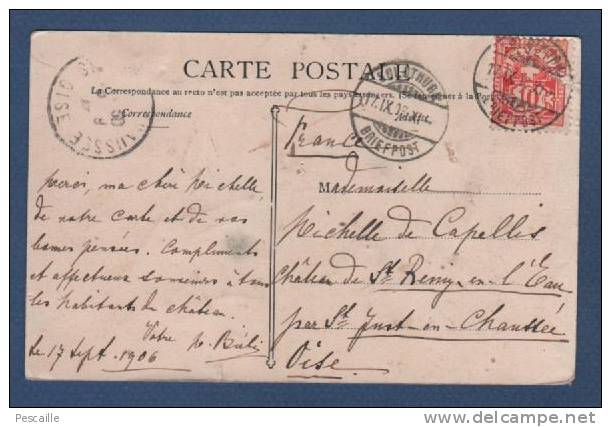 CARTE POSTALE
La Correspondance au recto n'est pas acceptée par tous les pays étrangers. (Se renseigner à la Poste
Correspondance
France
17.IX.06
BRIEFPOST
OISE
CHAUSSÉE
BRIEFPOST
10
Merci, ma chère Michelle,
de votre carte et de vos
bonnes pensées. Compliments
et affectueux souvenirs à tous
les habitants du château.
Votre
le 17 Sept. 1906
Mademoiselle
Michelle de Capellis
Château de St. Remy-en-l'Eau
par St. Just-en-Chaussée
Oise.
Pescaille
www.delcampe.net